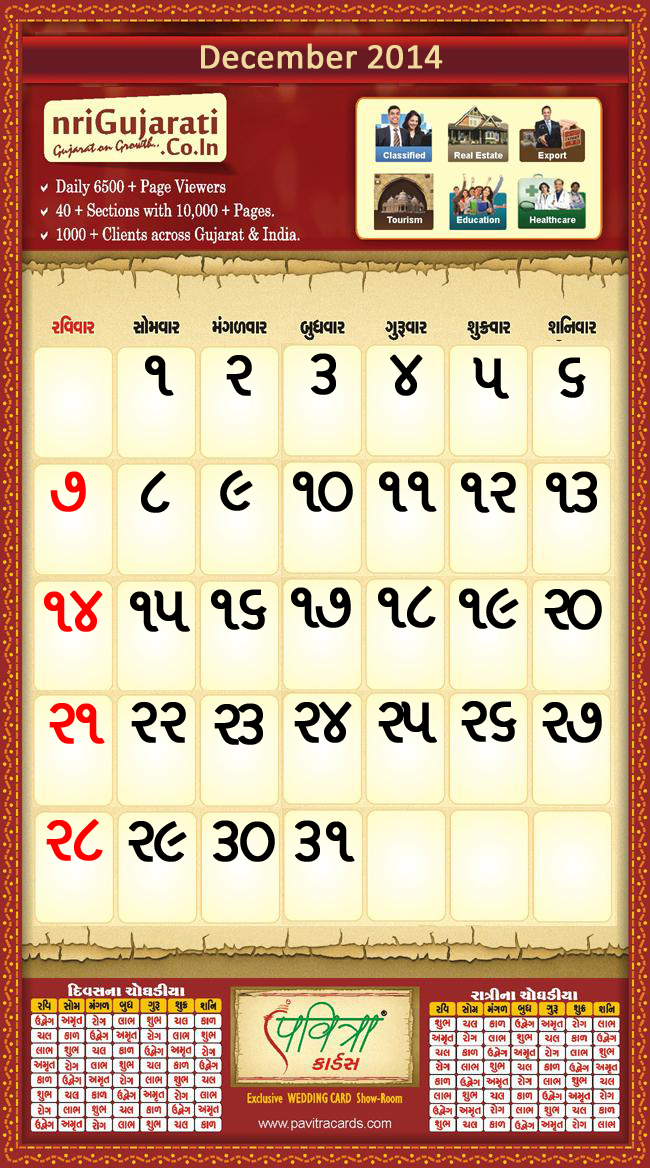 December 2014
nriGujarati
Gujarat on Growth..
.Co.In
Daily 6500 + Page Viewers
40 + Sections with 10,000 + Pages.
1000 + Clients across Gujarat & India.
Classified Real Estate Export
Tourism Education Healthcare
રવિવાર સોમવાર મંગળવાર બુધવાર ગુરૂવાર શુક્રવાર શનિવાર
૧ ૨ ૩ ૪ ૫ ૬
૭ ૮ ૯ ૧૦ ૧૧ ૧૨ ૧૩
૧૪ ૧૫ ૧૬ ૧૭ ૧૮ ૧૯ ૨૦
૨૧ ૨૨ ૨૩ ૨૪ ૨૫ ૨૬ ૨૭
૨૮ ૨૯ ૩૦ ૩૧
દિવસના ચોઘડીયા
રવિ સોમ મંગળ બુધ ગુરૂ શુક્ર શનિ
ઉદ્વેગ અમૃત રોગ લાભ શુભ ચલ કાળ
ચલ કાળ ઉદ્વેગ અમૃત રોગ લાભ શુભ
લાભ શુભ ચલ કાળ ઉદ્વેગ અમૃત રોગ
અમૃત રોગ લાભ શુભ ચલ કાળ ઉદ્વેગ
કાળ ઉદ્વેગ અમૃત રોગ લાભ શુભ ચલ
શુભ ચલ કાળ ઉદ્વેગ અમૃત રોગ લાભ
રોગ લાભ શુભ ચલ કાળ ઉદ્વેગ અમૃત
ઉદ્વેગ અમૃત રોગ લાભ શુભ ચલ કાળ
પવિત્રા®
કાર્ડસ
Exclusive WEDDING CARD Show-Room
www.pavitracards.com
રાત્રીના ચોઘડીયા
રવિ સોમ મંગળ બુધ ગુરૂ શુક્ર શનિ
શુભ ચલ કાળ ઉદ્વેગ અમૃત રોગ લાભ
અમૃત રોગ લાભ શુભ ચલ કાળ ઉદ્વેગ
ચલ કાળ ઉદ્વેગ અમૃત રોગ લાભ શુભ
રોગ લાભ શુભ ચલ કાળ ઉદ્વેગ અમૃત
કાળ ઉદ્વેગ અમૃત રોગ લાભ શુભ ચલ
લાભ શુભ ચલ કાળ ઉદ્વેગ અમૃત રોગ
ઉદ્વેગ અમૃત રોગ લાભ શુભ ચલ કાળ
શુભ ચલ કાળ ઉદ્વેગ અમૃત રોગ લાભ